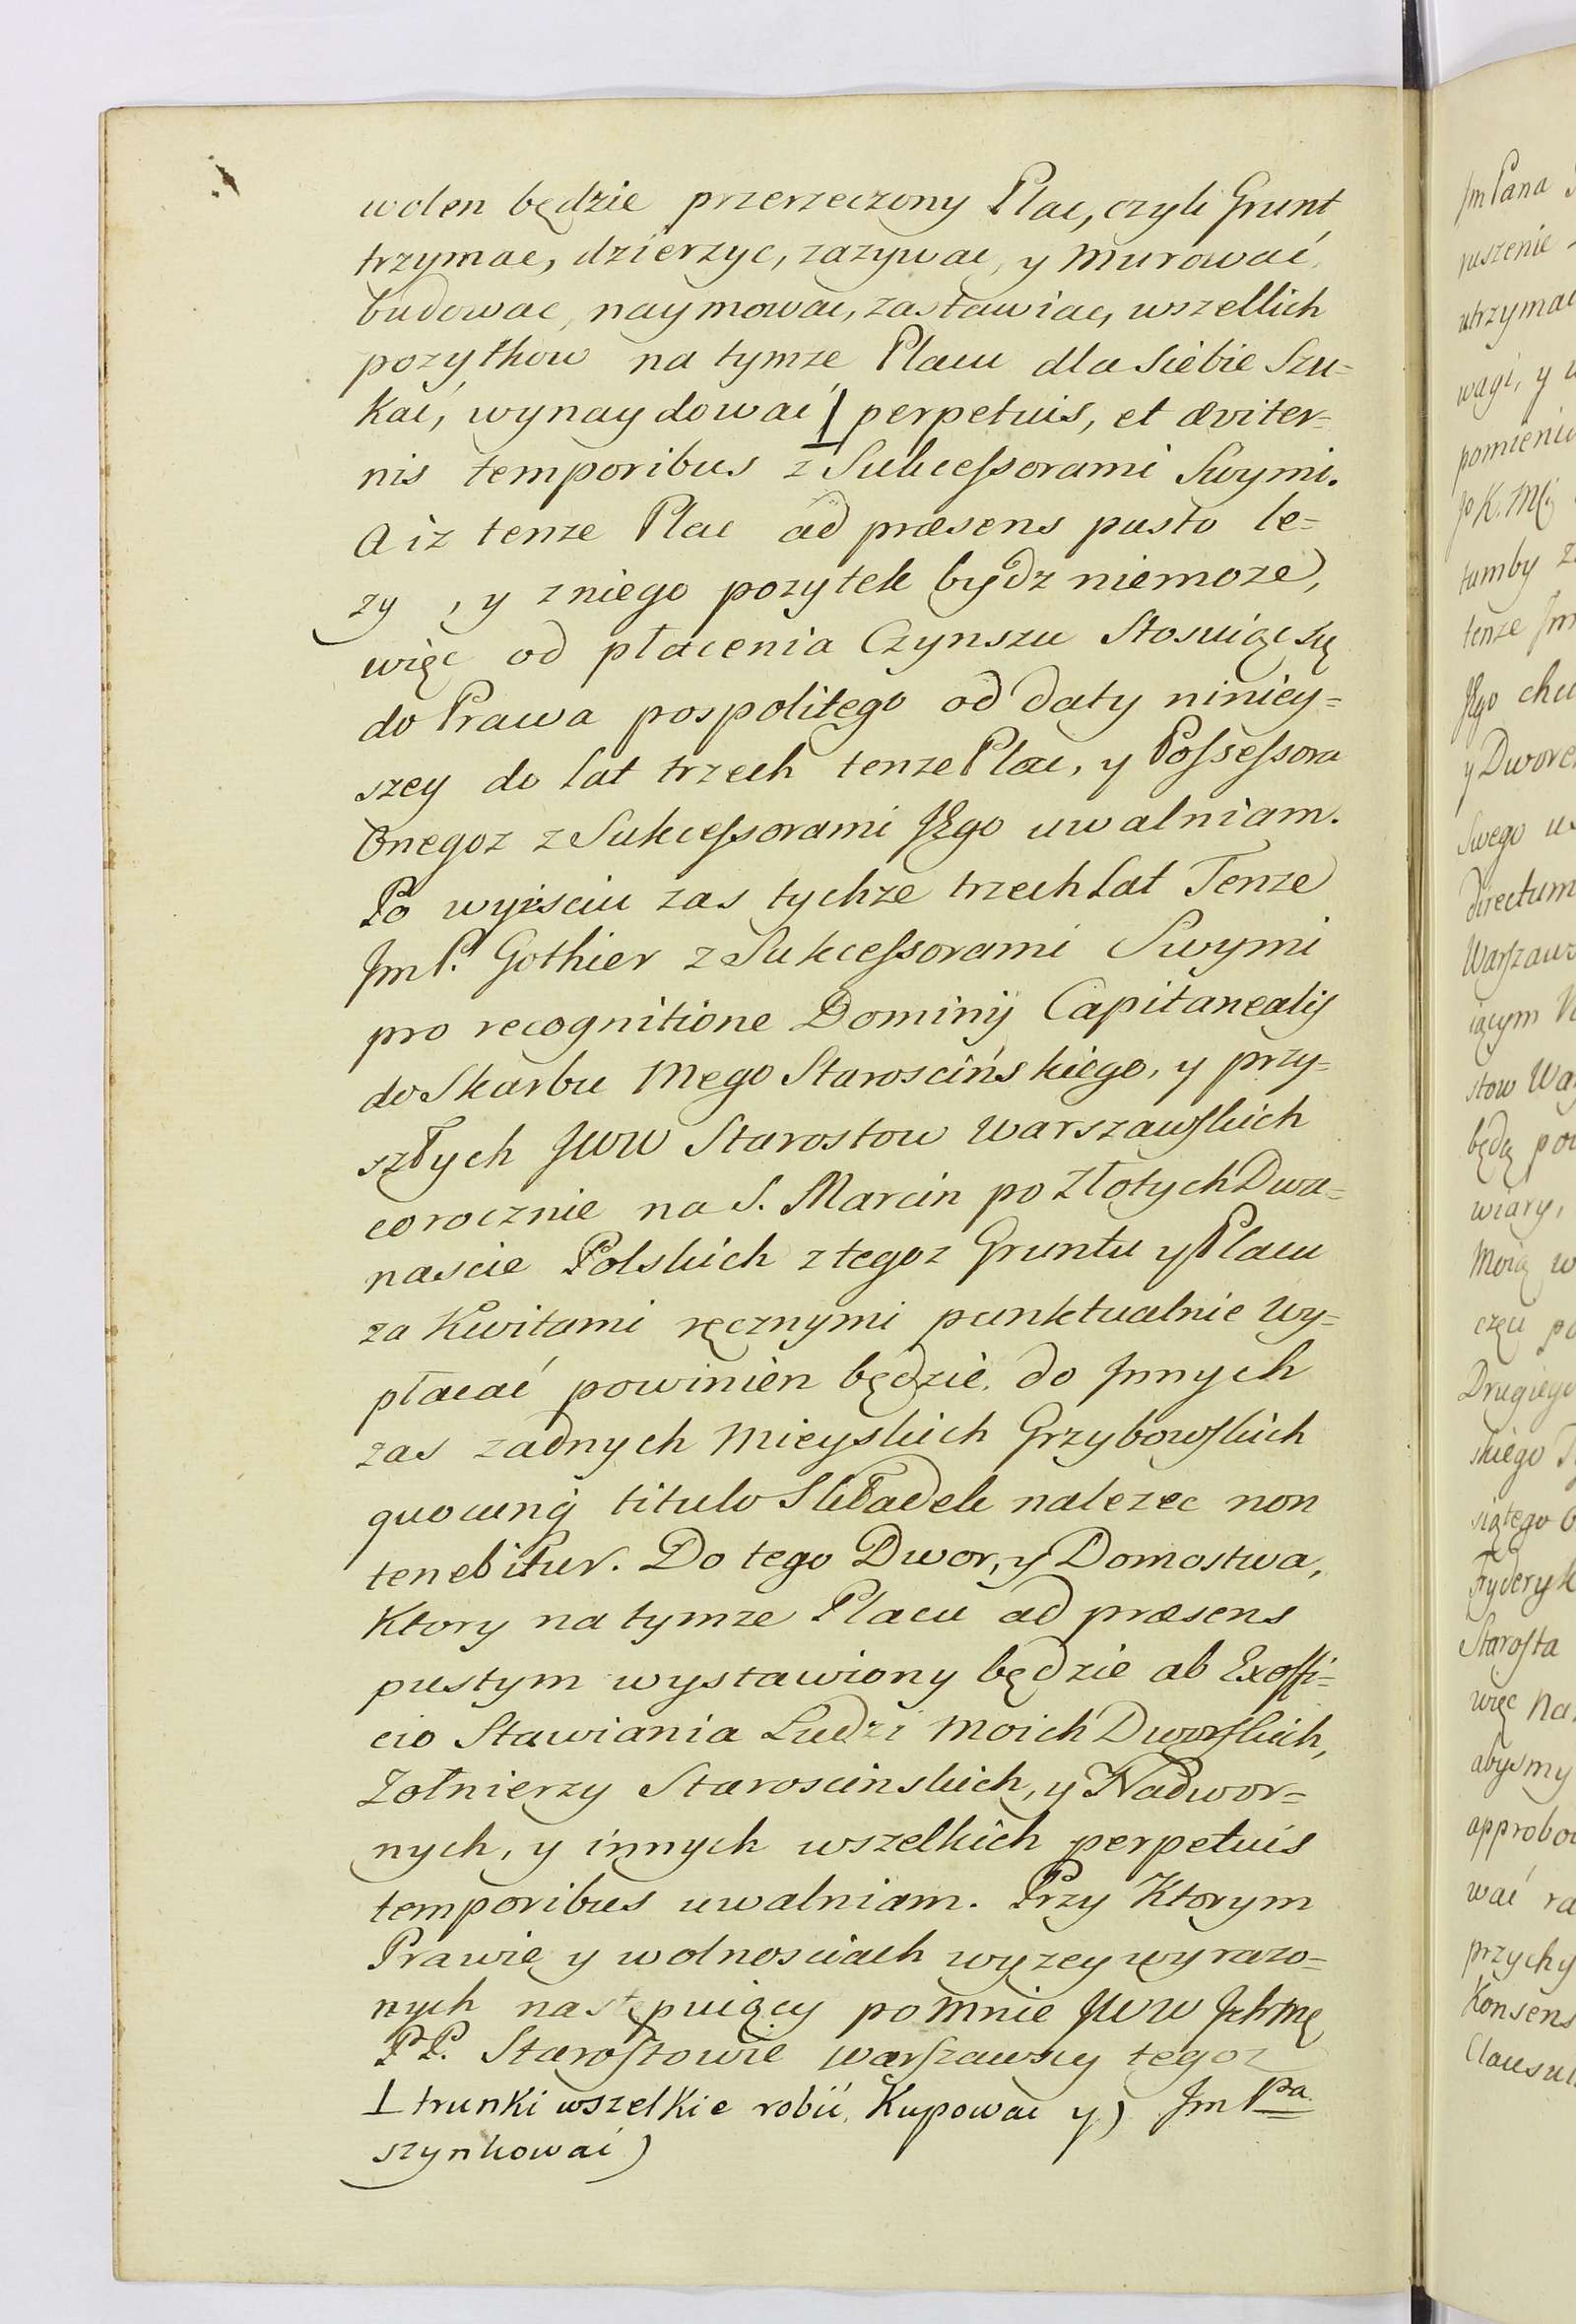 wolen będzie przerzeczony Plac, czyli Grunt
trzymac, dzierzyc, zazywac, y Murować,
budowac, naymowac, zastawiac, wszellich
pozytkow na tymze Placu dla Siebie Szu=
kać, wynaydować ⊥ perpetuis, et æviter=
nis temporibus z Sukcessorami Swymi.
A iz tenze Plac ad præsens pusto le=
zy, y z niego pozytek bydz niemoze,
więc od płacenia Czynszu Stosuiąc się
do Prawa pospolitego od daty niniey=
szey do lat trzech tenze Plac, y Possessora
Onegoz z Sukcessorami JEgo uwalniam.
Po wyiściu zas tychze trzech Lat Tenze
JmP. Gothier z Sukcessorami Swymi
pro recognitione Dominij Capitanealis
do Skarbu Mego Starościńskiego, y przy=
szłych JWW Starostow Warszawskich
corocznie na S. Marcin po Złotych Dwa=
nascie Polskich z tegoz Gruntu y Placu
za Kwitami ręcznymi punktualnie Wy=
płacać powinien będzie, do Jnnych
zas zadnych Mieyskich Grzybowskich
quocunq titulo Składek nalezec non
tenebitur. Do tego Dwor, y Domostwa,
Ktory na tymze Placu ad præsens
pustym wystawiony będzie ab Exoffi=
cio Stawiania Ludzi Moich Dworskich,
Zołnierzy Staroscinskich, y Nadwor=
nych, y innych wszelkich perpetuis
temporibus uwalniam. Przy Ktorym
Prawie y wolnosciach wyzey wyrazo=
nych następuiący po Mnie JWW
PP. Starostowie Warszawscy tegoz
⊥ trunki wszelkie robić, Kupowac y) Jm Pa
szynkować)
Jm Pana
ruszenie
utrzymac
wagi, y
tumby
tenze Jm
JEgo
y
Swego
directum
iącym
stow
będą
wiary,
Moią
częu
Drugiego
skiego
siątego
Fryderyk
Starosta
więc Na
abysmy
wać
przychy
Konsens